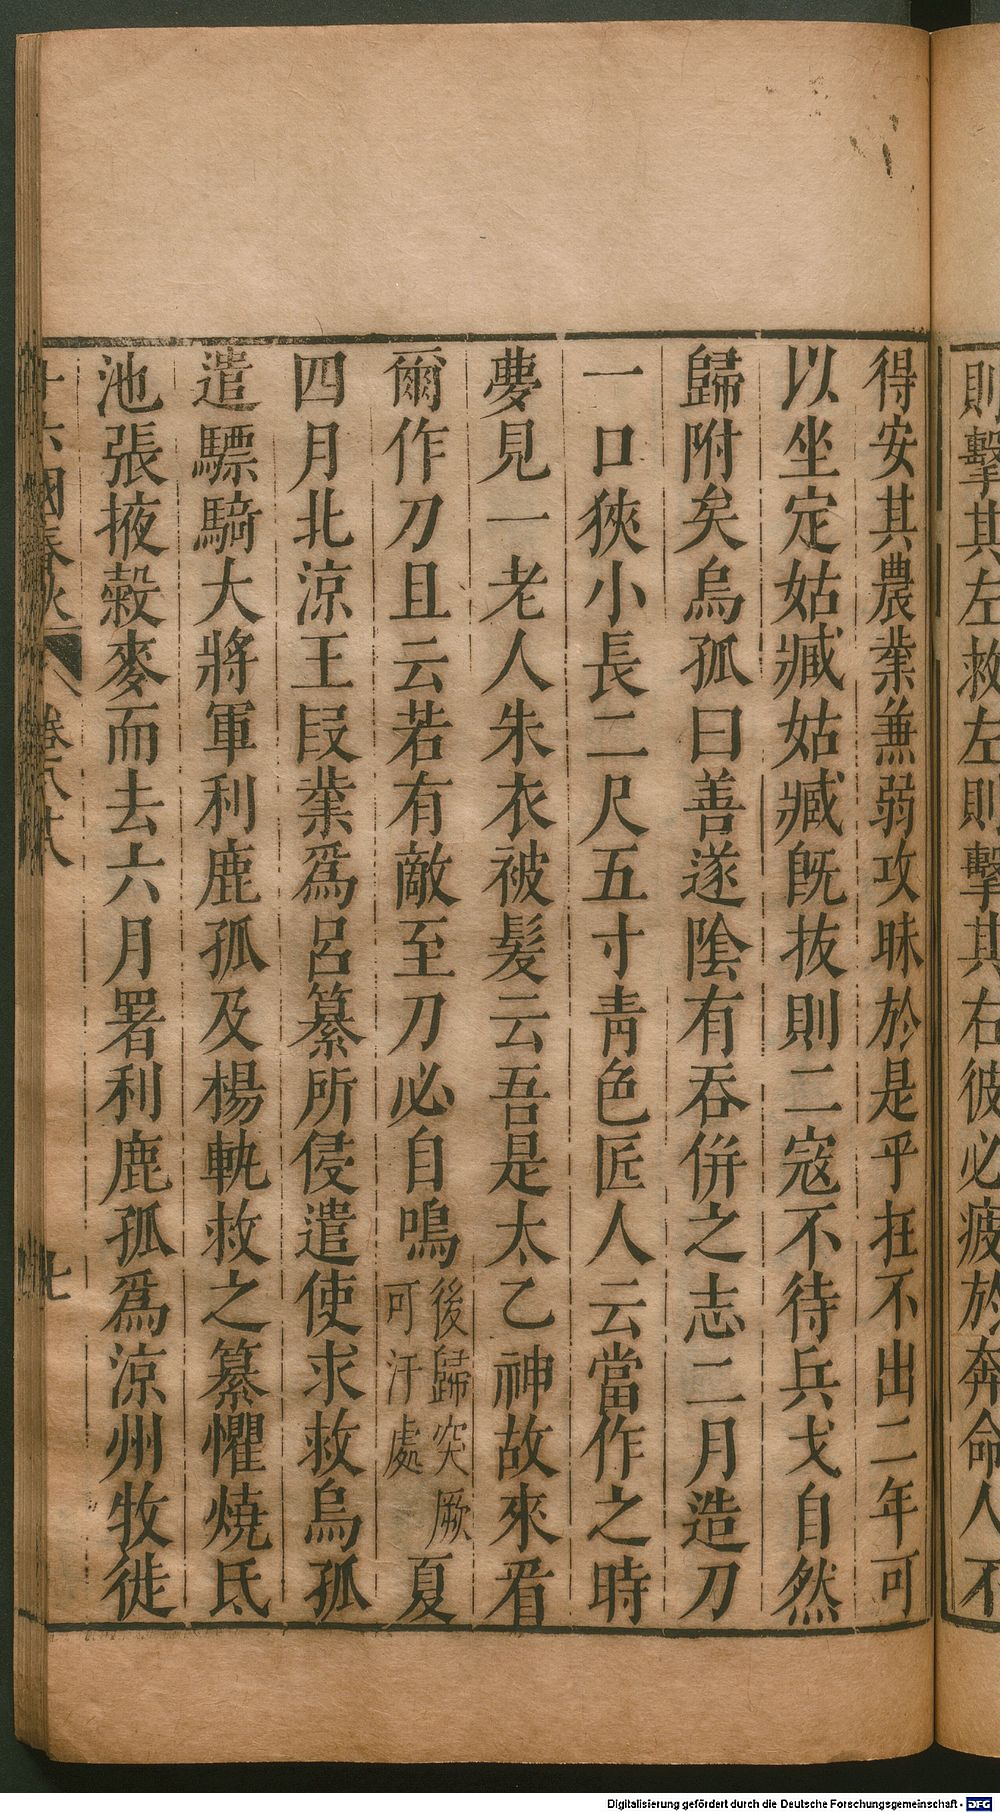 則擊其左救左則擊其右彼必疲於奔命人不
得安其農業兼弱攻昧於是乎在不出二年可
以坐定姑臧姑臧既拔則二寇不待兵戈自然
歸附矣烏孤曰善遂陰有吞併之志二月造刀
一口狹小長二尺五寸青色匠人云當作之時
夢見一老人朱衣被髮云吾是太乙神故來看
爾作刀且云若有敵至刀必自鳴後歸突厥可汗處夏
四月北涼王段業為呂纂所侵遣使求救烏孤
遣驃騎大將軍利鹿孤及楊軌救之纂懼燒氐
池張掖穀麥而去六月署利鹿孤為涼州牧徙
十六國春秋 卷八十八 七
Digitalisierung gefördert durch die Deutsche Forschungsgemeinschaft - DFG